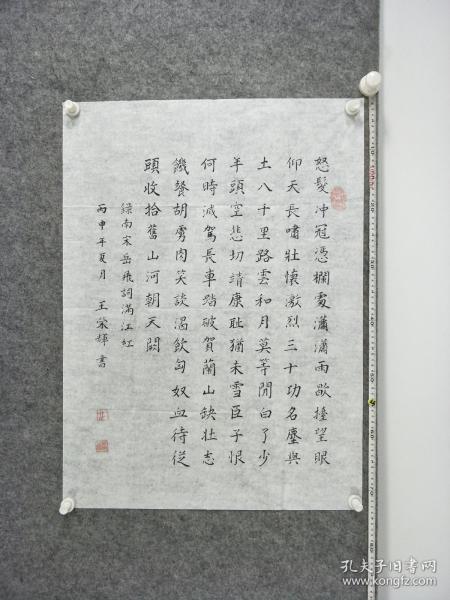 怒髮冲冠憑欄處瀟瀟雨歇擡望眼
仰天長嘯壯懷激烈三十功名塵與
土八千里路雲和月莫等閒白了少
年頭空悲切靖康耻猶未雪臣子恨
何時滅駕長車踏破賀蘭山缺壯志
饑餐胡虜肉笑談渴飲匈奴血待從
頭收拾舊山河朝天闕
錄南宋岳飛詞滿江紅
丙申年夏月 王榮輝書
孔夫子旧书网
www.kongfz.com